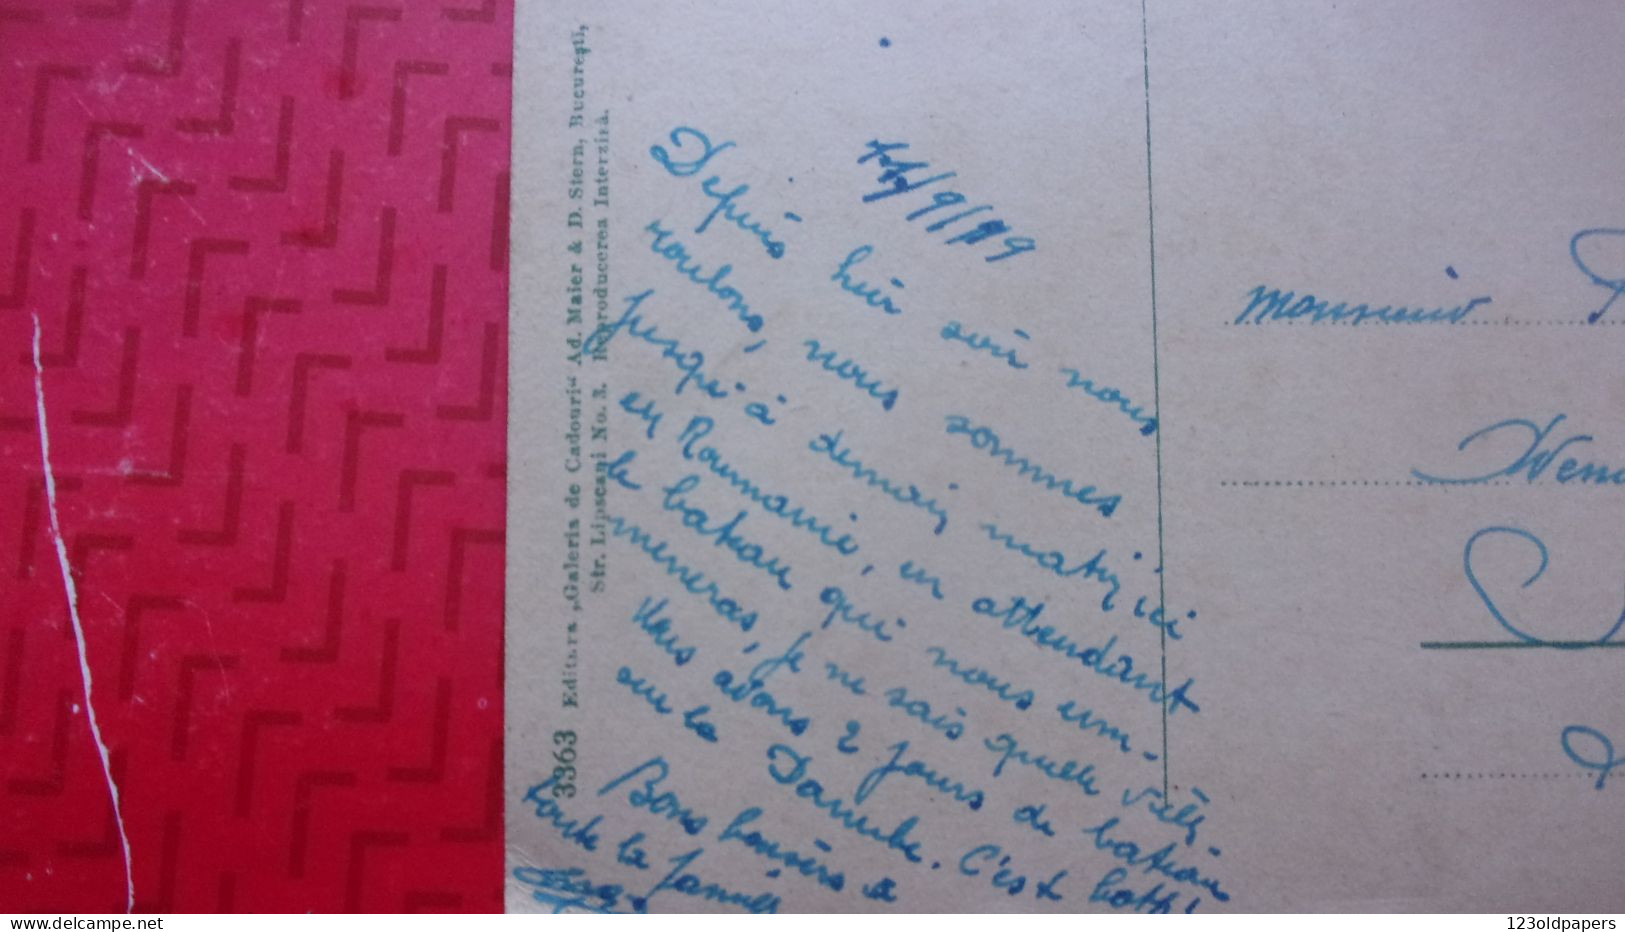 3363 Editura „Galeria de Cadouri“ Ad. Maier & D. Stern, Bucureşti,
Str. Lipscani No. 3. Reproducerea Interzisă.
/9/19
Depuis hier soir nous
roulons, nous sommes
jusqu'à demain matin ici
en Roumanie, en attendant
le bateau qui nous em-
meneras, je ne sais quelle ville
Nous avons 2 jours de bateau
sur la Danube. C'est
Bons baisers a
toute la famille
monsieur
delcampe.net
123oldpapers